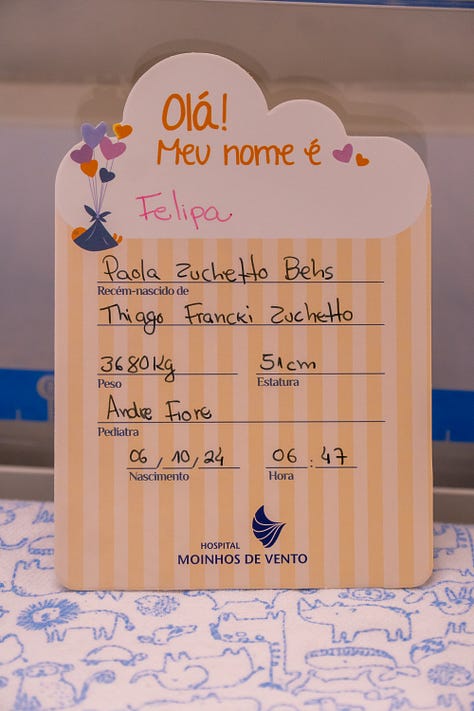 Olá!
Meu nome é
Felipa
Paola Zuchetto Behs
Recém-nascido de
Thiago Francki Zuchetto
3680kg 51cm
Peso Estatura
Andre Fiore
Pediatra
06/10/24 06:47
Nascimento Hora
HOSPITAL
MOINHOS DE VENTO